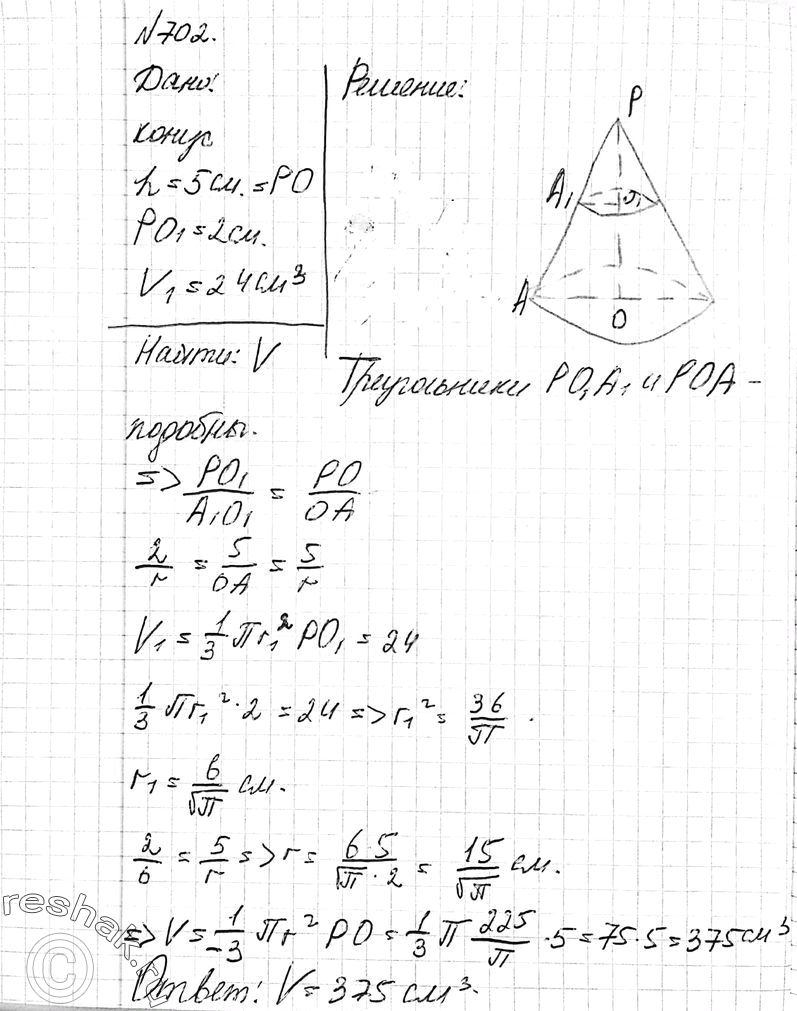 №702.
Дано:
конус
h = 5 см. = PO
PO₁ = 2 см.
V₁ = 24 см³
Найти: V
Решение:
P
A₁
O₁
A
O
Треугольники PO₁A₁ и POA –
подобны.
=> PO₁/A₁O₁ = PO/OA
2/r = 5/OA = 5/r
V₁ = 1/3 πr₁² PO₁ = 24
1/3 πr₁² · 2 = 24 => r₁² = 36/π .
r₁ = 6/√π см.
2/6 = 5/r => r = 6 5/√π · 2 = 15/√π см.
=> V = 1/3 πr² PO = 1/3 π 225/π · 5 = 75 · 5 = 375 см³
Ответ: V = 375 см³.
reshak.
©